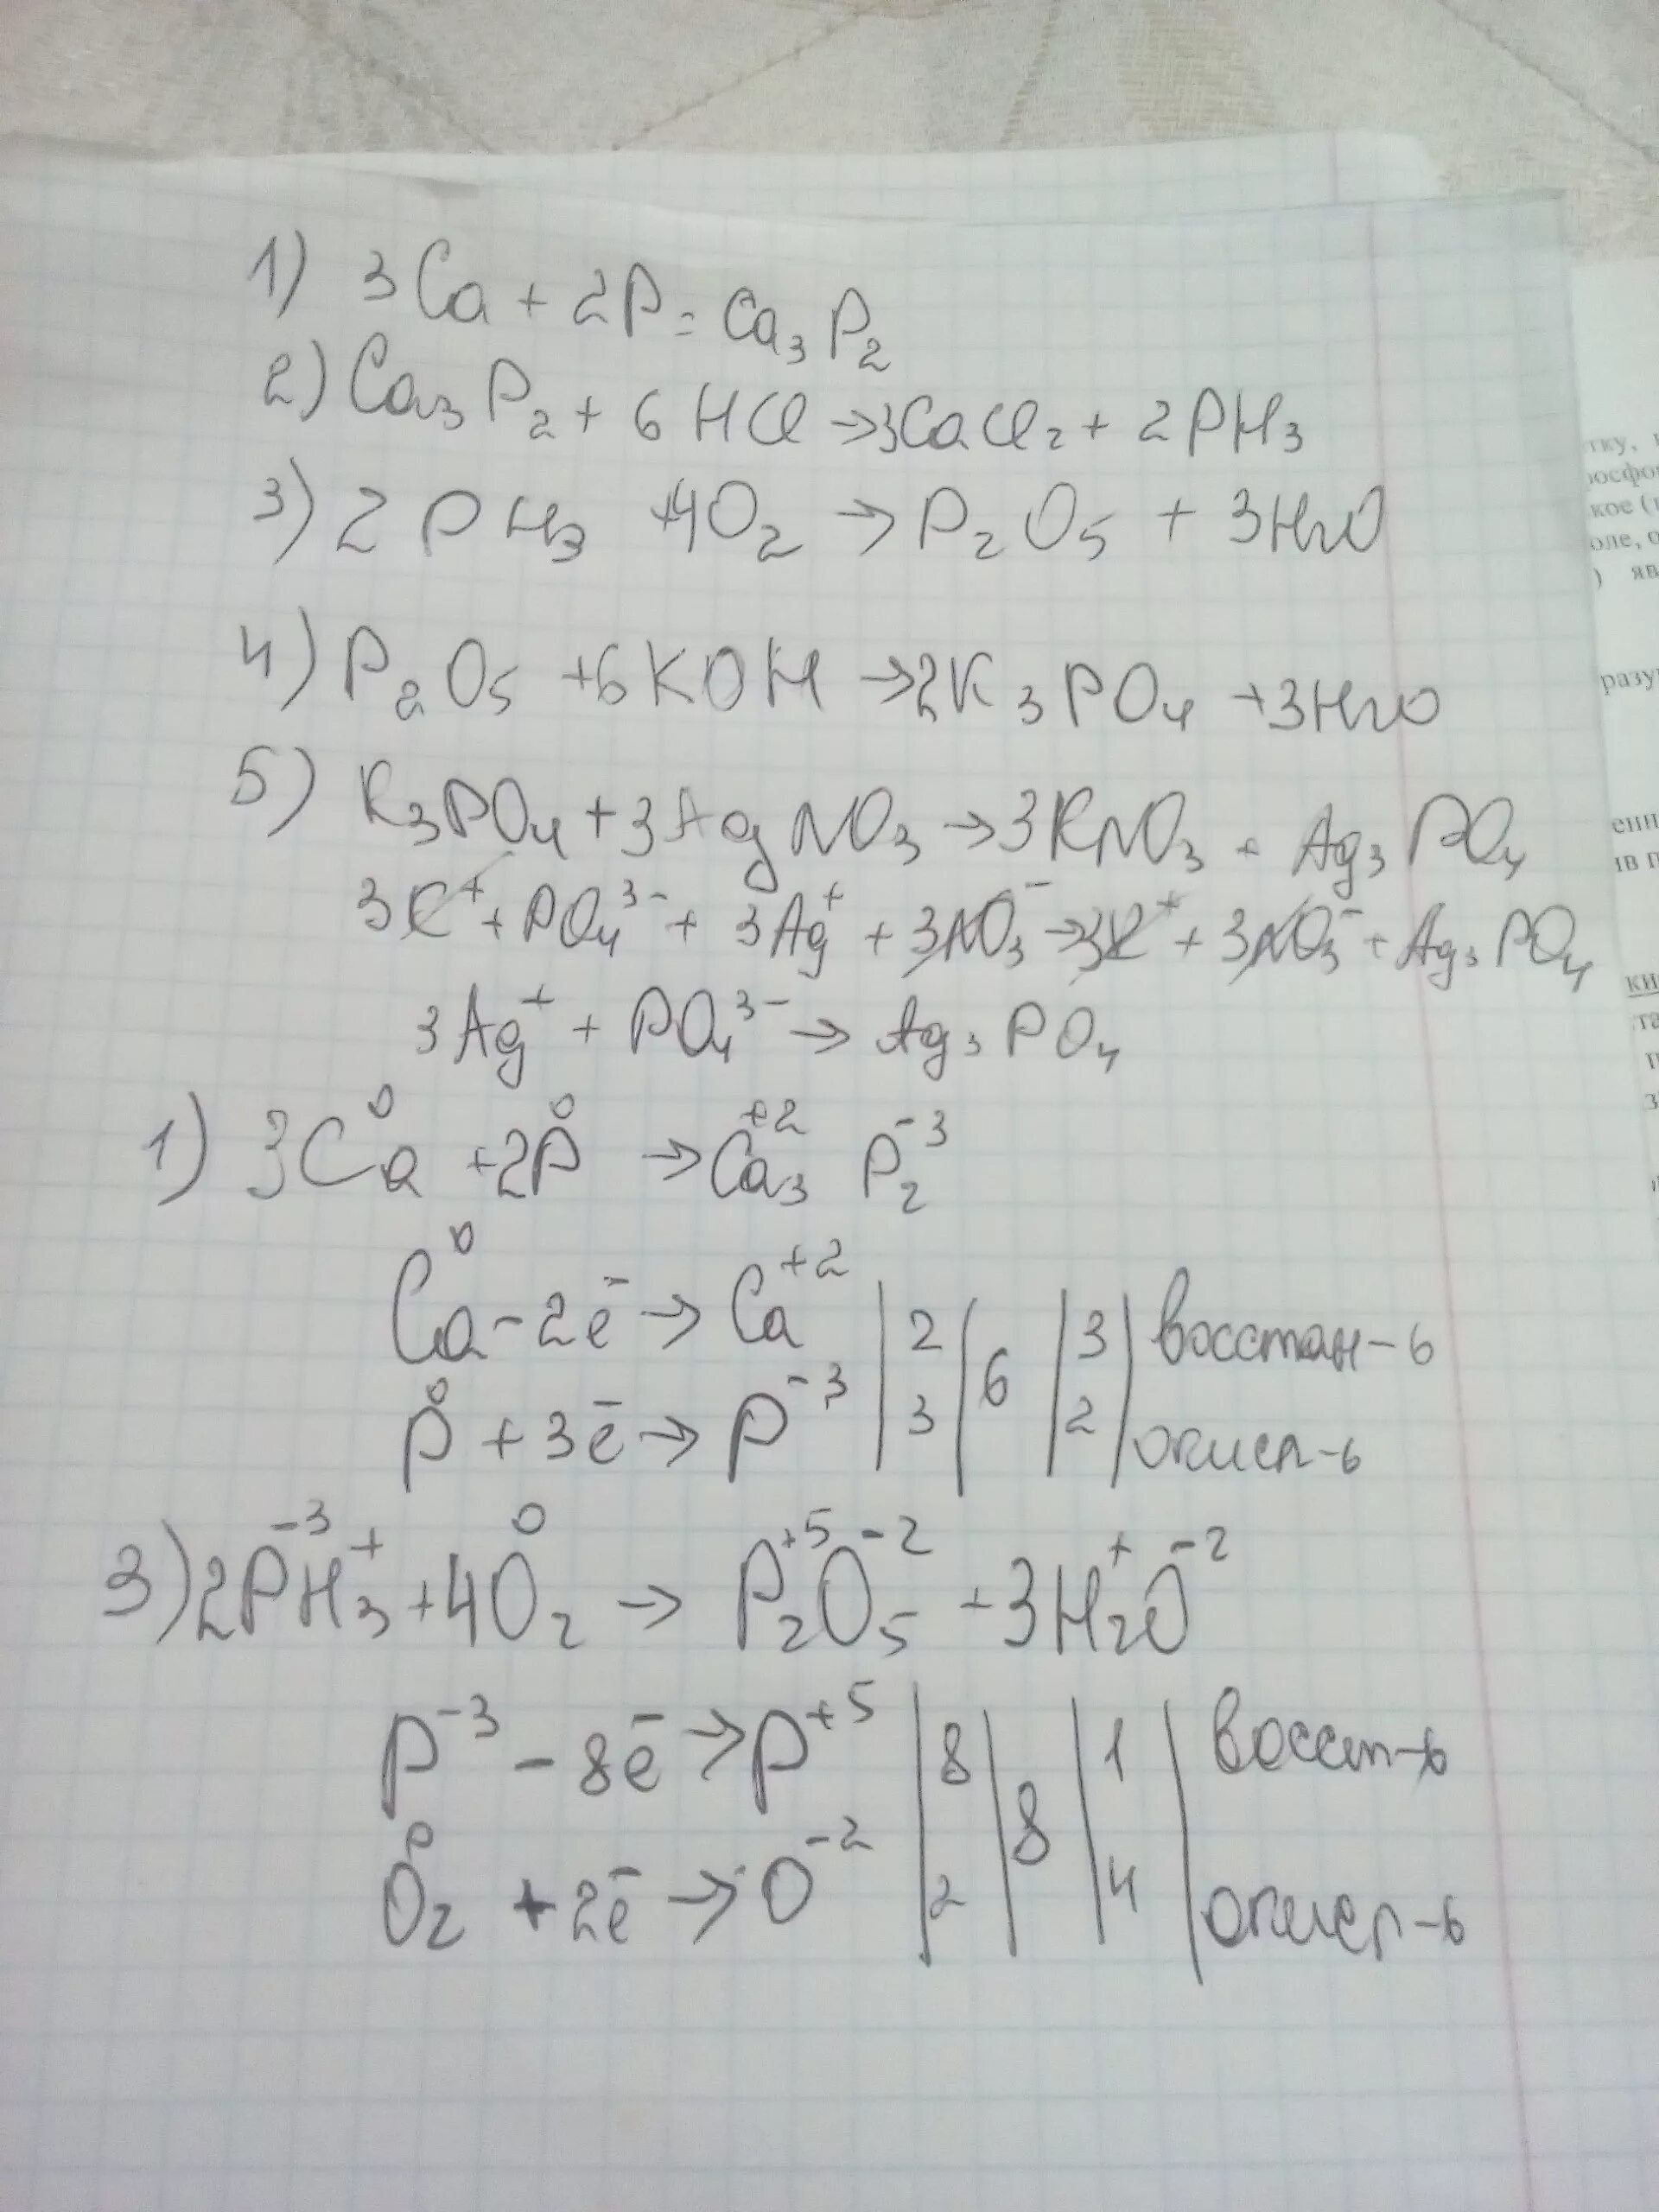 1) 3Ca + 2P = Ca₃P₂
2) Ca₃P₂ + 6HCl → 3CaCl₂ + 2PH₃
3) 2PH₃ + 4O₂ → P₂O₅ + 3H₂O
4) P₂O₅ + 6KOH → 2K₃PO₄ + 3H₂O
5) K₃PO₄ + 3AgNO₃ → 3KNO₃ + Ag₃PO₄
3K⁺ + PO₄³⁻ + 3Ag⁺ + 3NO₃⁻ → 3K⁺ + 3NO₃⁻ + Ag₃PO₄
3Ag⁺ + PO₄³⁻ → Ag₃PO₄
1) 3Ca⁰ + 2P⁰ → Ca₃⁺² P₂⁻³
Ca⁰ - 2e⁻ → Ca⁺² | 2 | 6 | 3 | восстан-ь
P⁰ + 3e⁻ → P⁻³ | 3 | | 2 | окисл-ь
3) 2P⁻³H₃⁺ + 4O₂⁰ → P₂⁺⁵O₅⁻² + 3H₂⁺O⁻²
P⁻³ - 8e⁻ → P⁺⁵ | 8 | 8 | 1 | восст-ь
O₂⁰ + 2e⁻ → O⁻² | 2 | | 4 | окисл-ь
разу